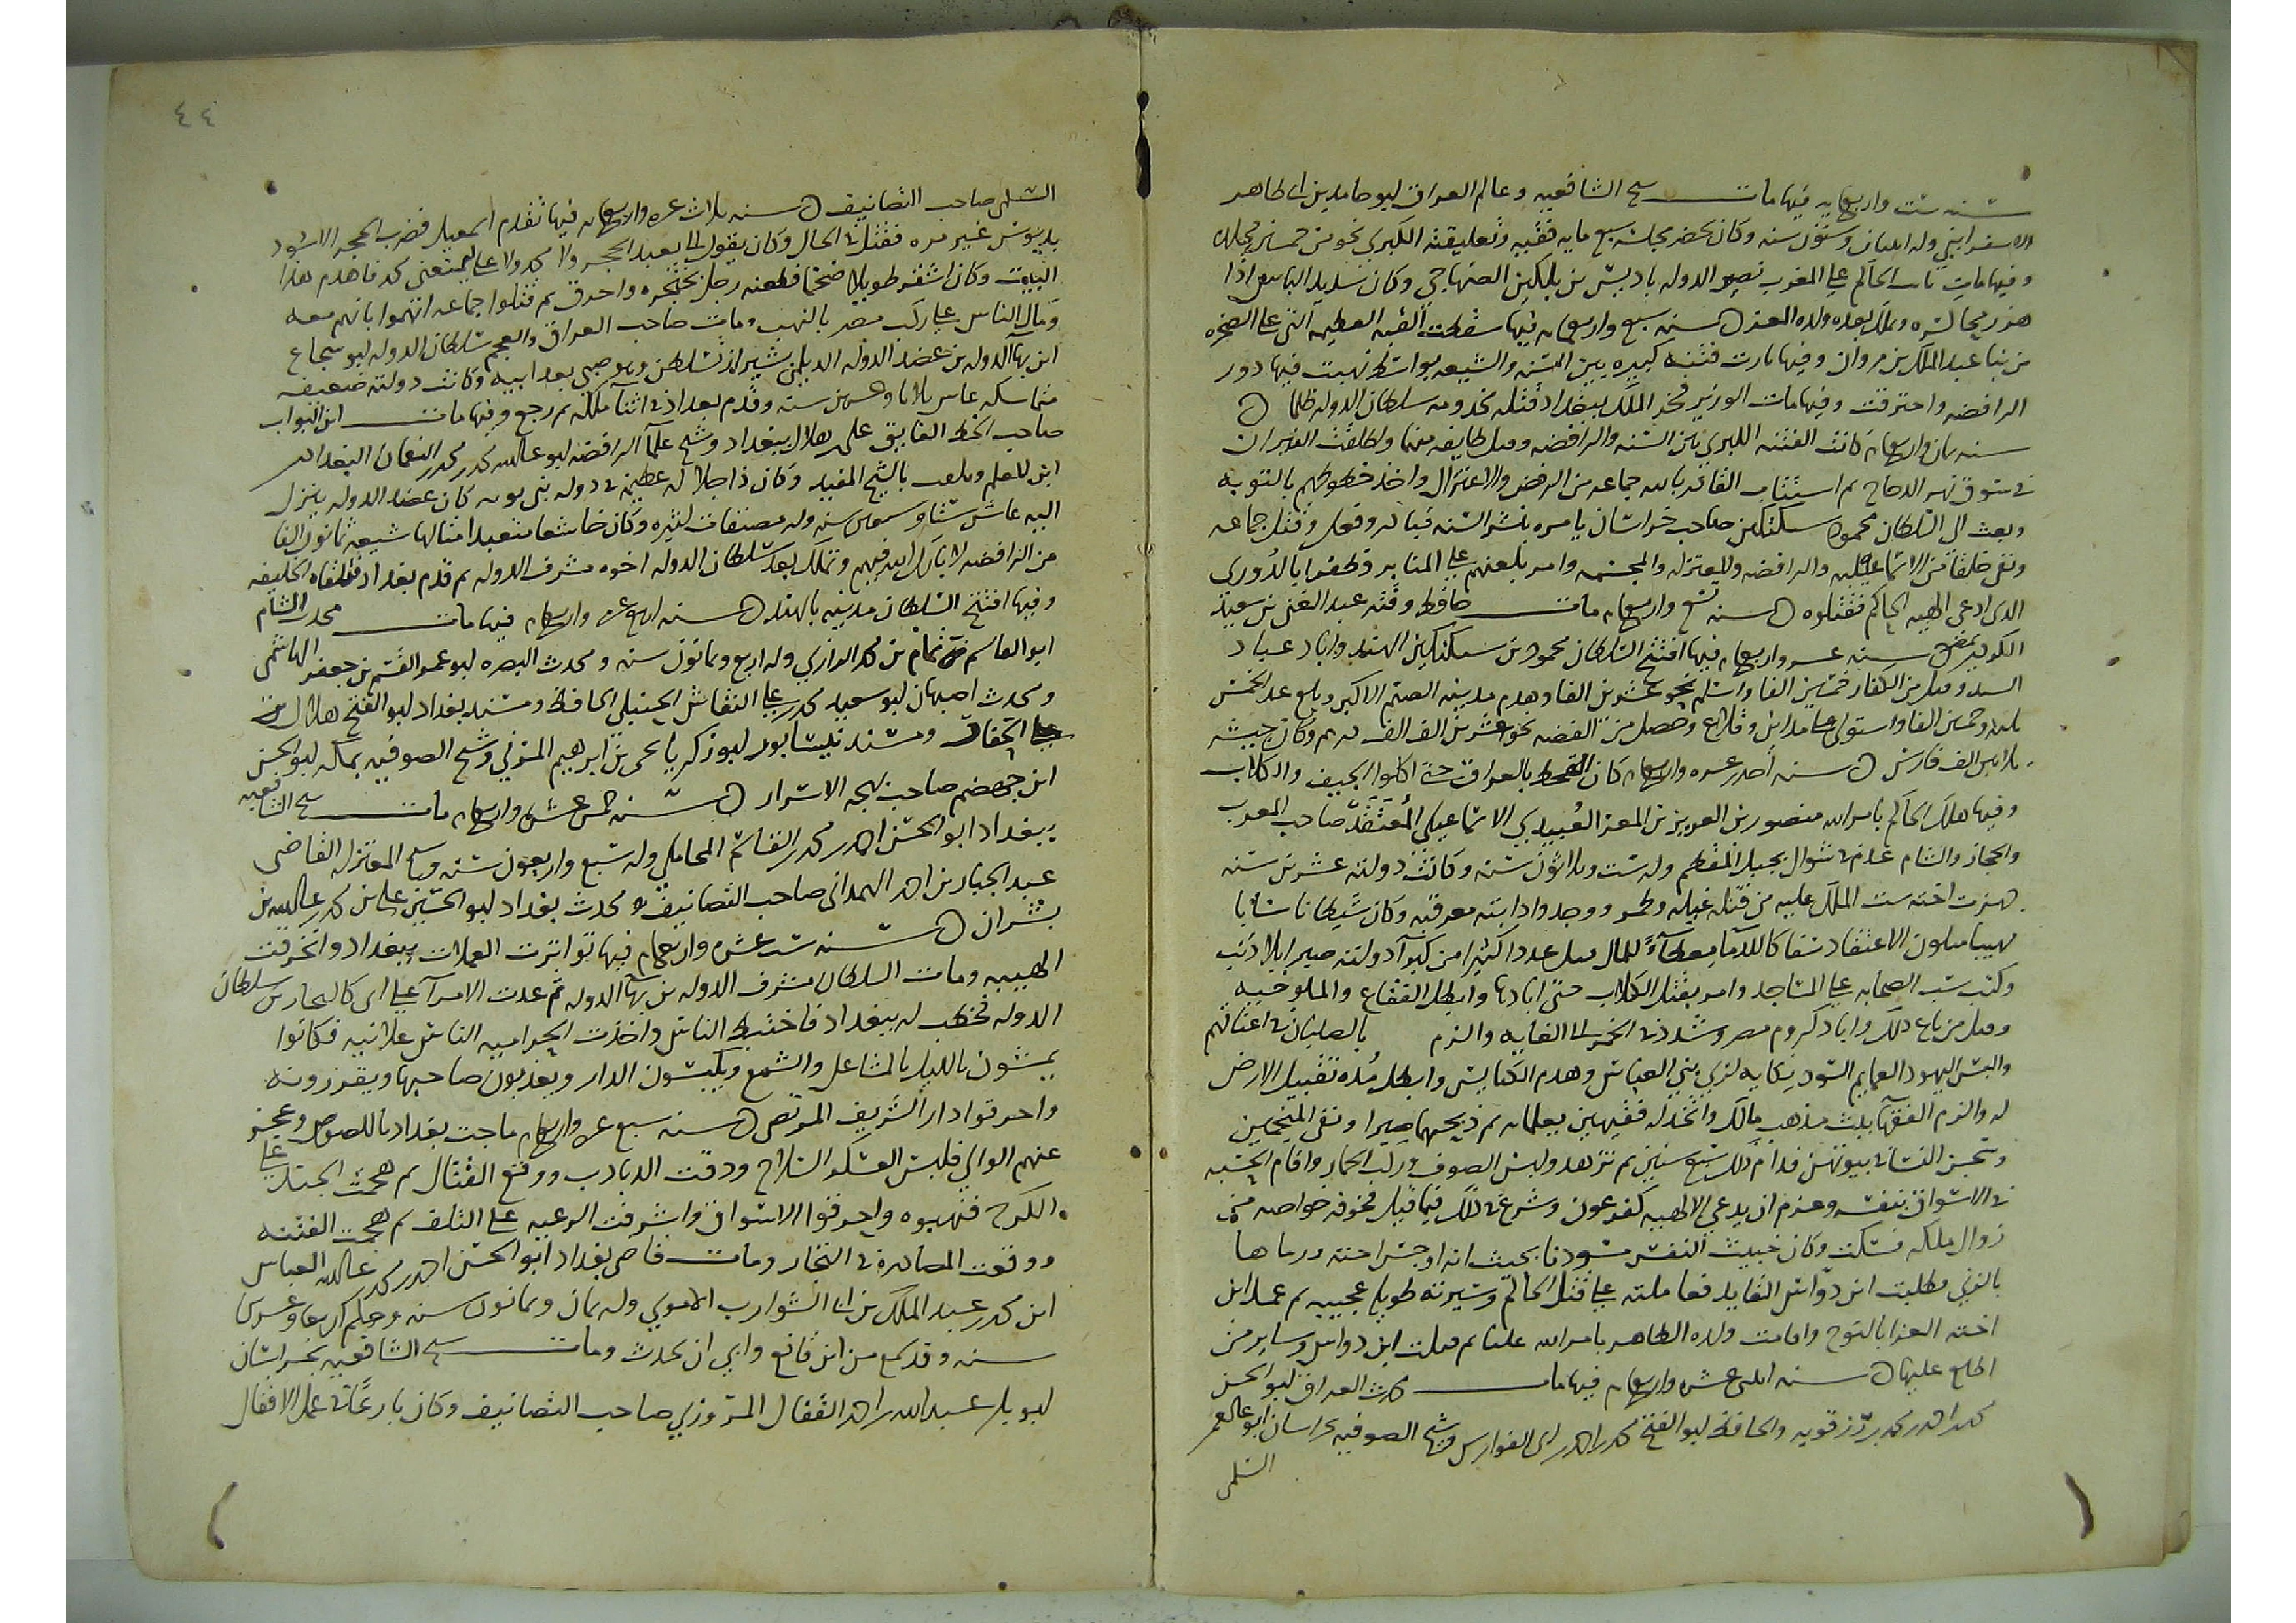 سنه ست واربعمايه فيها مات شيخ الشافعيه وعالم العراق ابو حامد بن ابي طاهر
الاسفرايني وله اثنان وستون سنه وكان يحضر مجلسه سبع مايه فقيه وتعليقته الكبري نحو من خمسين مجلدا
وفيها مات نايب الحاكم علي المغرب نصير الدوله باديس بن بلكين الصنهاجي وكان شديد الباس اذا
هز رمحا كسره وتملك بعده ولده المعز ه سنه سبع واربعمايه فيها سقطت القبه العظيمه التي علي الصخره
من بنا عبد الملك بن مروان وفيها ثارت فتنه كبيره بين السنه والشيعه بواسط نهبت فيها دور
الرافضه واحترقت وفيها مات الوزير فخر الملك ببغداد قتله مخدومه سلطان الدوله ظلما ه
سنه ثمان واربعمايه كانت الفتنه الكبري بين السنه والرافضه وقتل طايفه منهما واطلقت النيران
في سوق نهر الدجاج ثم استتاب القادر بالله جماعه من الرفض والاعتزال واخذ خطوطهم بالتوبه
وبعث الى السلطان محمود سبكتكين صاحب خراسان يامره بنشر السنه فبادر وفعل وقتل جماعه
ونفى خلقا من الاسماعيليه والرافضه والمعتزله والمجسمه وامر بلعنهم علي المنابر وظفرا بالدروري
الذي ادعى الهيه الحاكم فقتلوه ه سنه تسع واربعمايه مات حافظ وقته عبد الغني بن سعيد
بمصر سنه عشر واربعمايه فيها افتتح السلطان محمود بن سبكتكين الهند واباد عباد
وقتل من الكفار خمسين الفا واسلم نحو عشرين الفا وهدم مدينه الصنم الاكبر وبلغ عدد الخمس
ثلثه وخمسين الفا واستولى علي مداين وقلاع وحصل من الفضه نحو عشرين الف الف درهم وكان جيشه
ثلاثين الف فارس ه سنه احدى عشره واربعمايه كان القحط بالعراق حتى اكلوا الجيف والكلاب
وفيها هلك الحاكم بامر الله منصور بن العزيز بن المعز العُبيدي الاسماعيلي المعتقد صاحب المغرب
والحجاز والشام عدم في شوال بجبل المقطم وله ست وثلاثون سنه وكانت دولته عشرين سنه
جهزت اخته ست الملك عليه من قتله غيله وطمر ووجدوا دابته معرقبه وكان شيطانا شابا
مهيبا متلون الاعتقاد سفاكا للدما معطآءً للمال قتل عددا كثيرا من كبرآ دولته صبرا بلا ذنب
وكتب سب الصحابه علي المساجد وامر بقتل الكلاب حتى ابادها وابطل الفقاع والملوخيه
وقتل من باع ذلك واباد كروم مصر وشدد في الخمر الى الغايه والزم بالصلبان في اعناقهم
والبس اليهود العمايم السود نكايه لزي بني العباس وهدم الكنايس وابطل مده تقبيل الارض
له والزم الفقها بثت مذهب مالك واتخذ له فقيهين يعلمانه ثم ذبحهما صبرا ونفى المنجمين
وسجن النسا في بيوتهن فدام ذلك سبع سنين ثم تزهد ولبس الصوف وركب الحمار واقام الحسبه
في الاسواق بنفسه وعزم ان يدعي الالهيه كفرعون وشرع في ذلك فيما قيل فخوفه خواصه من
زوال ملكه فسكت وكان خبيث النفس مسودنا بحيث انه اوحش اخته ورماها
بالزني فطلبت ابن دواس القايد فعاملته علي قتل الحاكم وسيرته طويله عجيبه ثم عمل ابن
اخته العزا بالنوح واقامت ولده الظاهر بامر الله عليا ثم قتلت ابن دواس وساير من
اطلع عليها ه سنه اثنتي عشره واربعمايه فيها مات محدث العراق ابو الحسن
محمد احمد محمد بن رزقويه والحافظ ابو الفتح محمد احمد ابي الفوارس وشيخ الصوفيه بخراسان ابو عبد الرحمن
السلمى
٤٤
السلمى صاحب التصانيف ه سنه ثلاث عشره واربعمايه فيها تقدم اسمعيلي فضرب الحجر الاسود
بدبوس غير مره فقتل في الحال وكان يقول الى متى يعبد الحجر ولا محمد ولا علي فيمنعني محمد فاهدم هذا
البيت وكان اشقر طويلا ضخما فطعنه رجل بخنجره واحرق ثم قتلوا جماعه اتهموا بانهم معه
ومال الناس علي ركب مصر بالنهب ومات صاحب العراق والعجم سلطان الدوله ابو شجاع
ابن بهآ الدوله بن عضد الدوله الديلمي بشيراز تسلطن وهو صبي بعد ابيه وكانت دولته ضعيفه
متماسكه عاش ثلاثا وعشرين سنه وقدم بغداد في اثنآ ملكه ثم رجع وفيها مات ابن البواب
صاحب الخط الفايق علي هلال ببغداد وشيخ علمآ الرافضه ابو عبد الله محمد محمد النعمان البغدادى
ابن المعلم ويلقب بالشيخ المفيد وكان ذا جلاله عظيمه في دوله بني بويه كان عضد الدوله ينزل
اليه عاش ستا وسبعين سنه وله مصنفات كثيره وكان خاشعا متعبدا متالها شيعه ثمانون الفا
من الرافضه لا بارك الله فيهم وتملك بعد سلطان الدوله اخوه مشرف الدوله ثم قدم بغداد فتلقاه الخليفه
وفيها افتتح السلطان مدينه بالهند ه سنه اربع عشره واربعمايه فيها مات محدث الشام
ابو القاسم تمام بن محمد الرازي وله اربع وثمانون سنه ومحدث البصره ابو عمر القسم بن جعفر الهاشمى
ومحدث اصبهان ابو سعيد محمد علي النقاش الحنبلي الحافظ ومسند بغداد ابو الفتح هلال بن محمد
الحفار ومسند نيسابور ابو زكريا يحيى بن ابرهيم المزني وشيخ الصوفيه بمكه ابو الحسن
ابن جهضم صاحب بهجه الاسرار ه سنه خمس عشره واربعمايه مات شيخ الشافعيه
ببغداد ابو الحسن احمد محمد القاسم المحاملي وله سبع واربعون سنه وشيخ المعتزله القاضي
عبد الجبار بن احمد الهمداني صاحب التصانيف ومحدث بغداد ابو الحسين علي بن محمد عبد الله بن
بشران ه سنه ست عشره واربعمايه فيها تواترت العملات ببغداد وانخرقت
الهيبه ومات السلطان مشرف الدوله بن بهآ الدوله ثم عدت الامرآ علي ابى كاليجار بن سلطان
الدوله فخطب له ببغداد فاختبط الناس واخذت الحراميه الناس علانيه فكانوا
يمشون بالليل بالمشاعل والشمع ويكبسون الدار ويعذبون صاحبها ويقررونه
واحرقوا دار الشريف المرتضى ه سنه سبع عشره واربعمايه ماجت بغداد باللصوص وعجز
عنهم الوالي فلبس العسكر السلاح ودقت الدبادب ووقع القتال ثم هجمت الجند علي
الكرخ فنهبوه واحرقوا الاسواق واشرفت الرعيه علي التلف ثم هجمت الفتنه
ووقعت المصادره في التجار ومات قاضى بغداد ابو الحسن احمد محمد عبد الله العباس
ابن محمد عبد الملك بن ابي الشوارب الاموي وله ثمان وثمانون سنه وحكم اربعا وعشرين
سنه وقد سمع من ابن قانع وابي ان يحدث ومات شيخ الشافعيه بخراسان
ابو بكر عبد الله احمد القفال المروزي صاحب التصانيف وكان بارعًا في عمل الاقفال